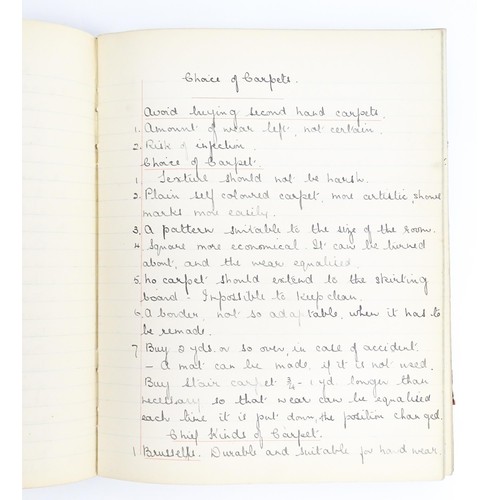 Choice of Carpets.
Avoid buying second hand carpets.
1. Amount of wear left, not certain.
2. Risk of infection.
Choice of Carpet.
1. Texture should not be harsh.
2. Plain self coloured carpet, more artistic, shows
marks more easily.
3. A pattern suitable to the size of the room.
4. Square more economical. It can be turned
about, and the wear equalised.
5. No carpet should extend to the skirting
board - Impossible to keep clean.
6. A border, not so adaptable, when it has to
be remade.
7. Buy 2 yds. or so over, in case of accident.
- A mat can be made, if it is not used.
Buy stair carpet ¾ - 1 yd. longer than
necessary so that wear can be equalised
each time it is put down, the position changed.
Chief Kinds of Carpet.
1. Brussells. Durable and suitable for hard wear.